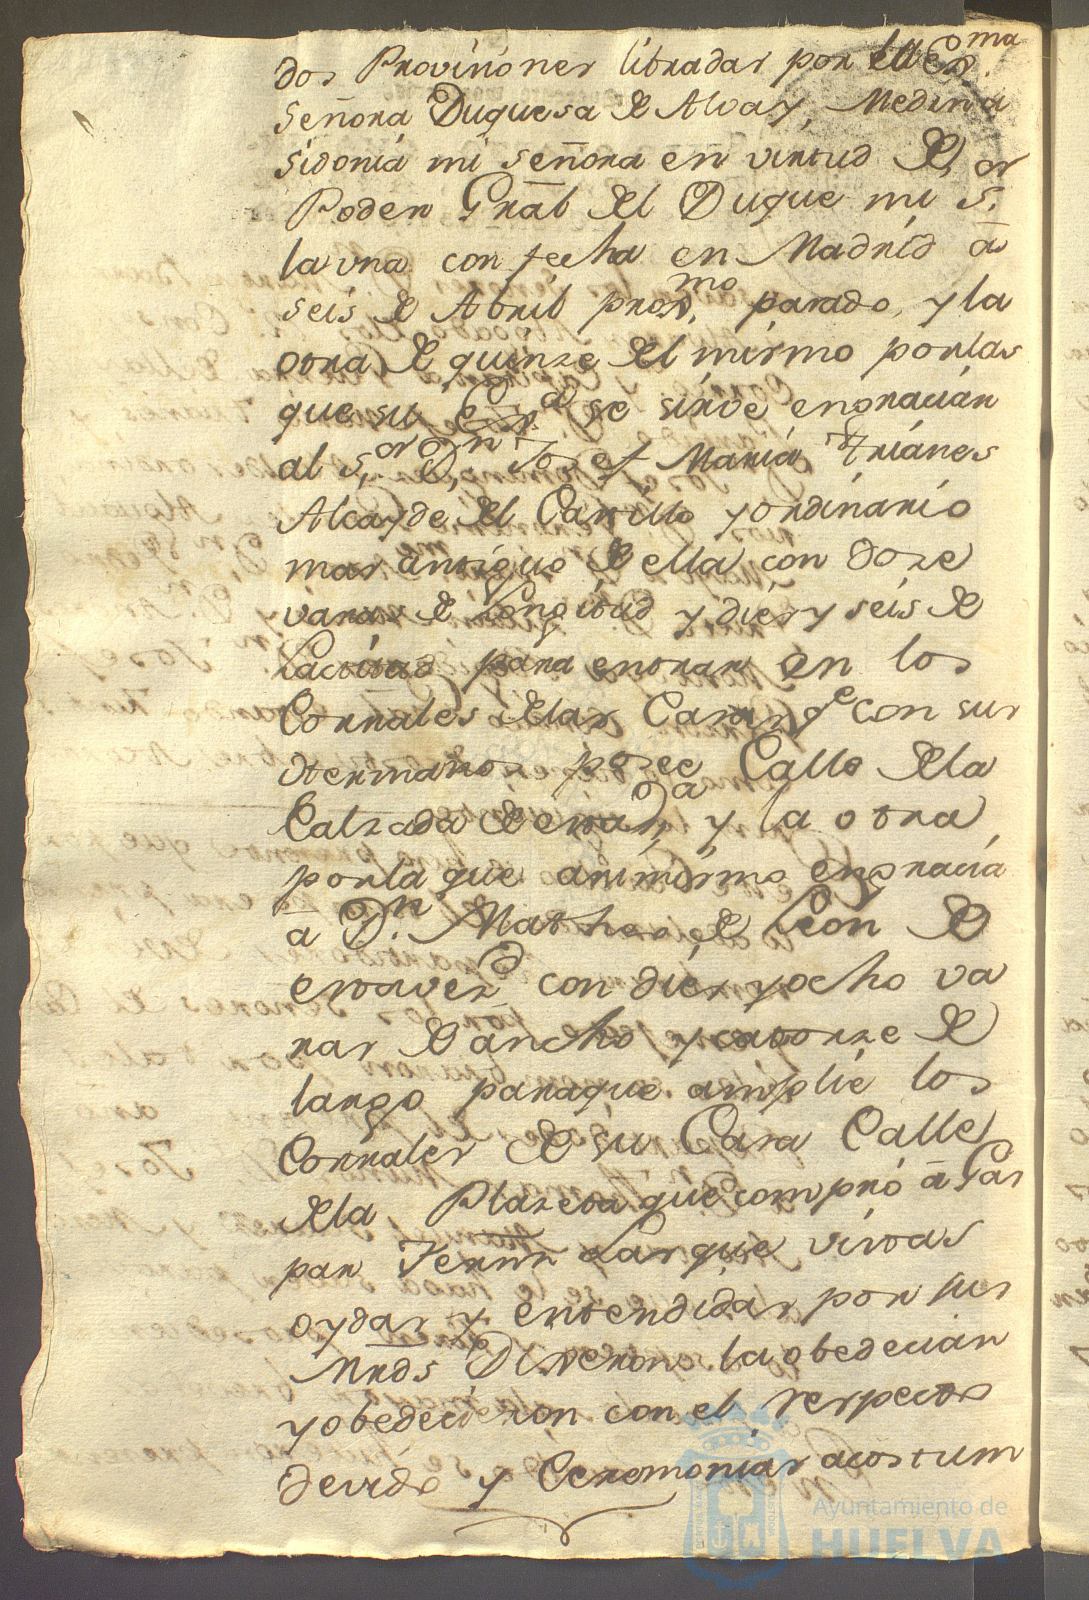 dos Provisiones libradas por la Ex.ma
Señora Duquesa de Alva y Medina
Sidonia mi Señora en virtud de
Poder Gral del Duque mi S.or
la vna con fecha en Madrid â
seis de Abril prox.mo pasado, y la
otra de quinze del mismo por las
que su Ex.a se sirve engraciar
al S.or D.n Josef Maria Trianes
Alcayde del Castillo y ordinario
mas antiguo de ella con doze
varas de Longitud y diez y seis de
Lactitud para entrar en los
Corrales de las Casas q.e con sus
Hermanos posee Calle de la
Calzada de esta, y la otra
por la que asimismo engracia
â D.n Matheo de Leon de
esta vez.d con diez y ocho va
ras de ancho y catorze de
largo para que amplie los
Corrales de su Casa Calle
de la Plazeta que compró â Gas
par Ferrer Las que vistas
oydas y entendidas por sus
Mrds Dixeron la obedecian
y obedecieron con el respecto
devido y Ceremonias acostum
Ayuntamiento de
HUELVA